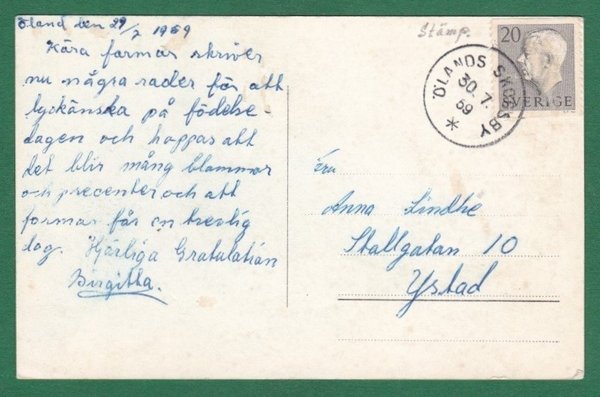 Öland den 29/7 1959
Kära farmor skriver
nu några rader för att
lyckönska på födelse-
dagen och hoppas att
det blir mång blommor
och precenter och att
formar får en trevlig
dag. Hjärliga Gratulatián
Birgitta.
Stämp.
20
SVERIGE
ÖLANDS SKOGSBY
30.7.
59
Fru
Anna Lindhe
Stallgatan 10
Ystad